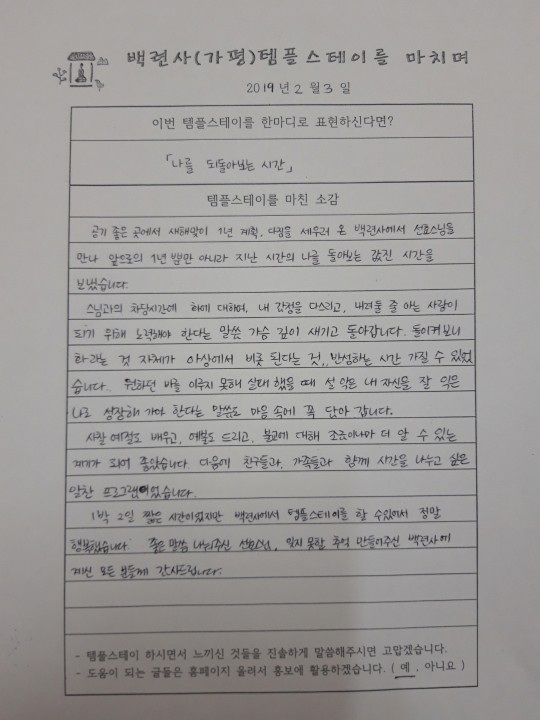 백련사(가평)템플스테이를 마치며
2019년 2월 3일
이번 템플스테이를 한마디로 표현하신다면?
「나를 되돌아보는 시간」
템플스테이를 마친 소감
공기 좋은 곳에서 새해맞이 1년 계획, 다짐을 세우러 온 백련사에서 선효스님을
만나 앞으로의 1년 뿐만 아니라 지난 시간의 나를 돌아보는 값진 시간을
보냈습니다.
스님과의 차담시간에 화에 대하여, 내 감정을 다스리고, 내려둘 줄 아는 사람이
되기 위해 노력해야 한다는 말씀 가슴 깊이 새기고 돌아갑니다. 돌이켜보니
화라는 것 자체가 아상에서 비롯 된다는 것,, 반성하는 시간 가질 수 있었
습니다. 원하던 바를 이루지 못해 실망 했을 때 설 익은 내 자신을 잘 익은
나로 성장해 가야 한다는 말씀도 마음 속에 꼭 담아 갑니다.
사찰 예절도 배우고, 예불도 드리고, 불교에 대해 조금이나마 더 알 수 있는
계기가 되어 좋았습니다. 다음에 친구들과, 가족들과 함께 시간을 나누고 싶은
알찬 프로그램이었습니다.
1박 2일 짧은 시간이었지만 백련사에서 템플스테이를 할 수있어서 정말
행복했습니다. 좋은 말씀 나눠주신 선효스님, 잊지 못할 추억 만들어주신 백련사에
계신 모든 분들께 감사드립니다.
- 템플스테이 하시면서 느끼신 것들을 진솔하게 말씀해주시면 고맙겠습니다.
- 도움이 되는 글들은 홈페이지 올려서 홍보에 활용하겠습니다. ( 예 , 아니요 )